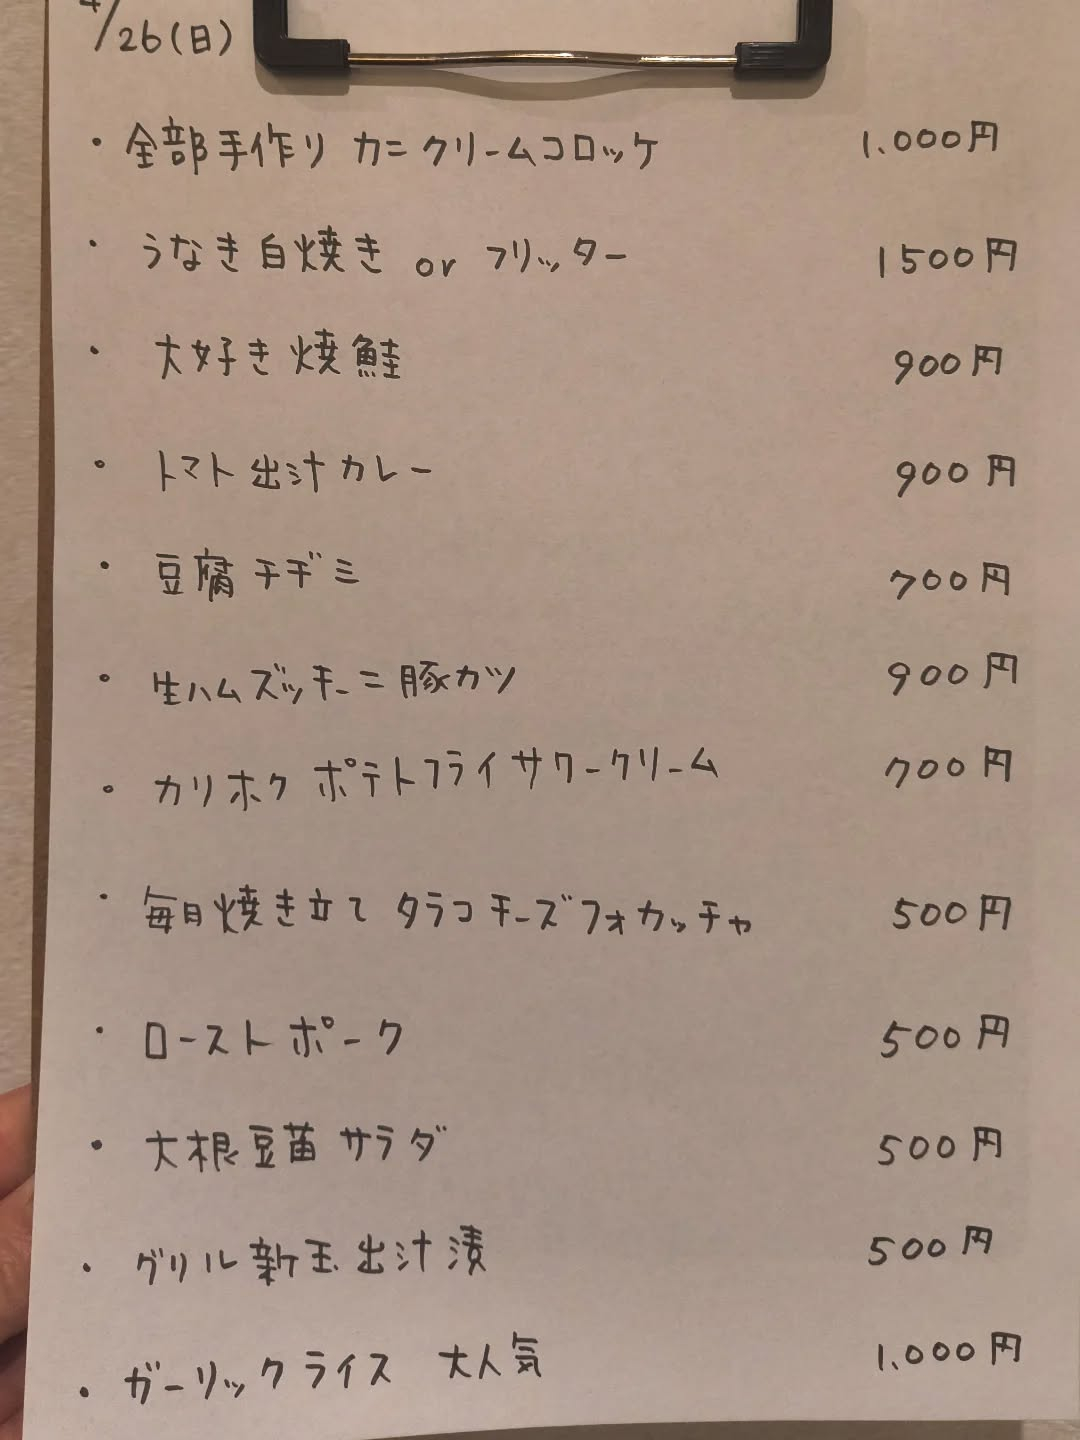 4/26(日)
・全部手作り カニクリームコロッケ 1.000円
・うなき白焼き or フリッター 1500円
・大好き焼鮭 900円
・トマト出汁カレー 900円
・豆腐チヂミ 700円
・生ハムズッキーニ豚カツ 900円
・カリホク ポテトフライサワークリーム 700円
・毎日焼き立て タラコチーズフォカッチャ 500円
・ローストポーク 500円
・大根豆苗サラダ 500円
・グリル新玉出汁漬 500円
・ガーリックライス 大人気 1.000円